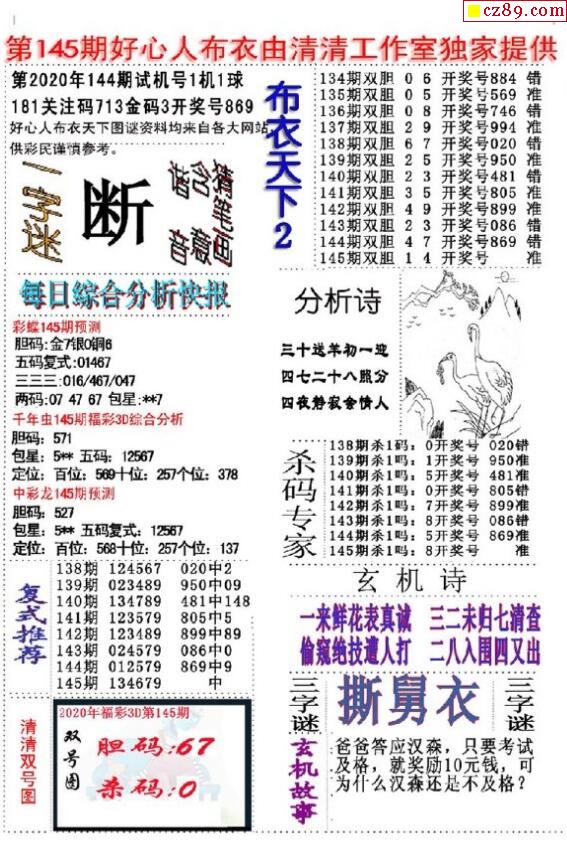 cz89.com
第145期好心人布衣由清清工作室独家提供
第2020年144期试机号1机1球
181关注码713金码3开奖号869
好心人布衣天下图谜资料均来自各大网站
供彩民谨慎参考。
一字迷
断
猜含猜
笔意画
布衣天下2
134期双胆 0 6 开奖号884 错
135期双胆 0 5 开奖号569 准
136期双胆 0 8 开奖号746 错
137期双胆 2 9 开奖号994 准
138期双胆 6 7 开奖号020 错
139期双胆 2 5 开奖号950 准
140期双胆 2 3 开奖号481 错
141期双胆 3 5 开奖号805 准
142期双胆 4 9 开奖号899 准
143期双胆 2 3 开奖号086 错
144期双胆 4 7 开奖号869 错
145期双胆 1 4 开奖号 准
每日综合分析快报
彩蝶145期预测
胆码:金7银0铜6
五码复式:01467
三三三:016/467/047
两码:07 47 67 包星:**7
千年虫145期福彩3D综合分析
胆码: 571
包星: 5** 五码: 12567
定位: 百位: 569十位: 257个位: 378
中彩龙145期预测
胆码: 527
包星: 5** 五码复式: 12567
定位: 百位: 568十位: 257个位: 137
分析诗
三十送羊初一迎
四七二十八照分
四夜静寂会情人
杀码专家
138期杀1码: 0开奖号 020错
139期杀1吗: 1开奖号 950准
140期杀1吗: 5开奖号 481准
141期杀1吗: 0开奖号 805错
142期杀1吗: 7开奖号 899准
143期杀1吗: 8开奖号 086错
144期杀1吗: 5开奖号 869准
145期杀1吗: 8开奖号 准
复式推荐
138期 124567 020中2
139期 023489 950中09
140期 134789 481中148
141期 123579 805中5
142期 123489 899中89
143期 024579 086中0
144期 012579 869中9
145期 134679 中
玄机诗
一来鲜花表真诚 三二未归七清查
偷窥绝技遭人打 二八入围四又出
清清双号图
2020年福彩3D第145期
双号图
胆码:67
杀码:0
三字谜
撕舅衣
三字谜
玄机故事
爸爸答应汉森，只要考试
及格，就奖励10元钱，可
为什么汉森还是不及格？